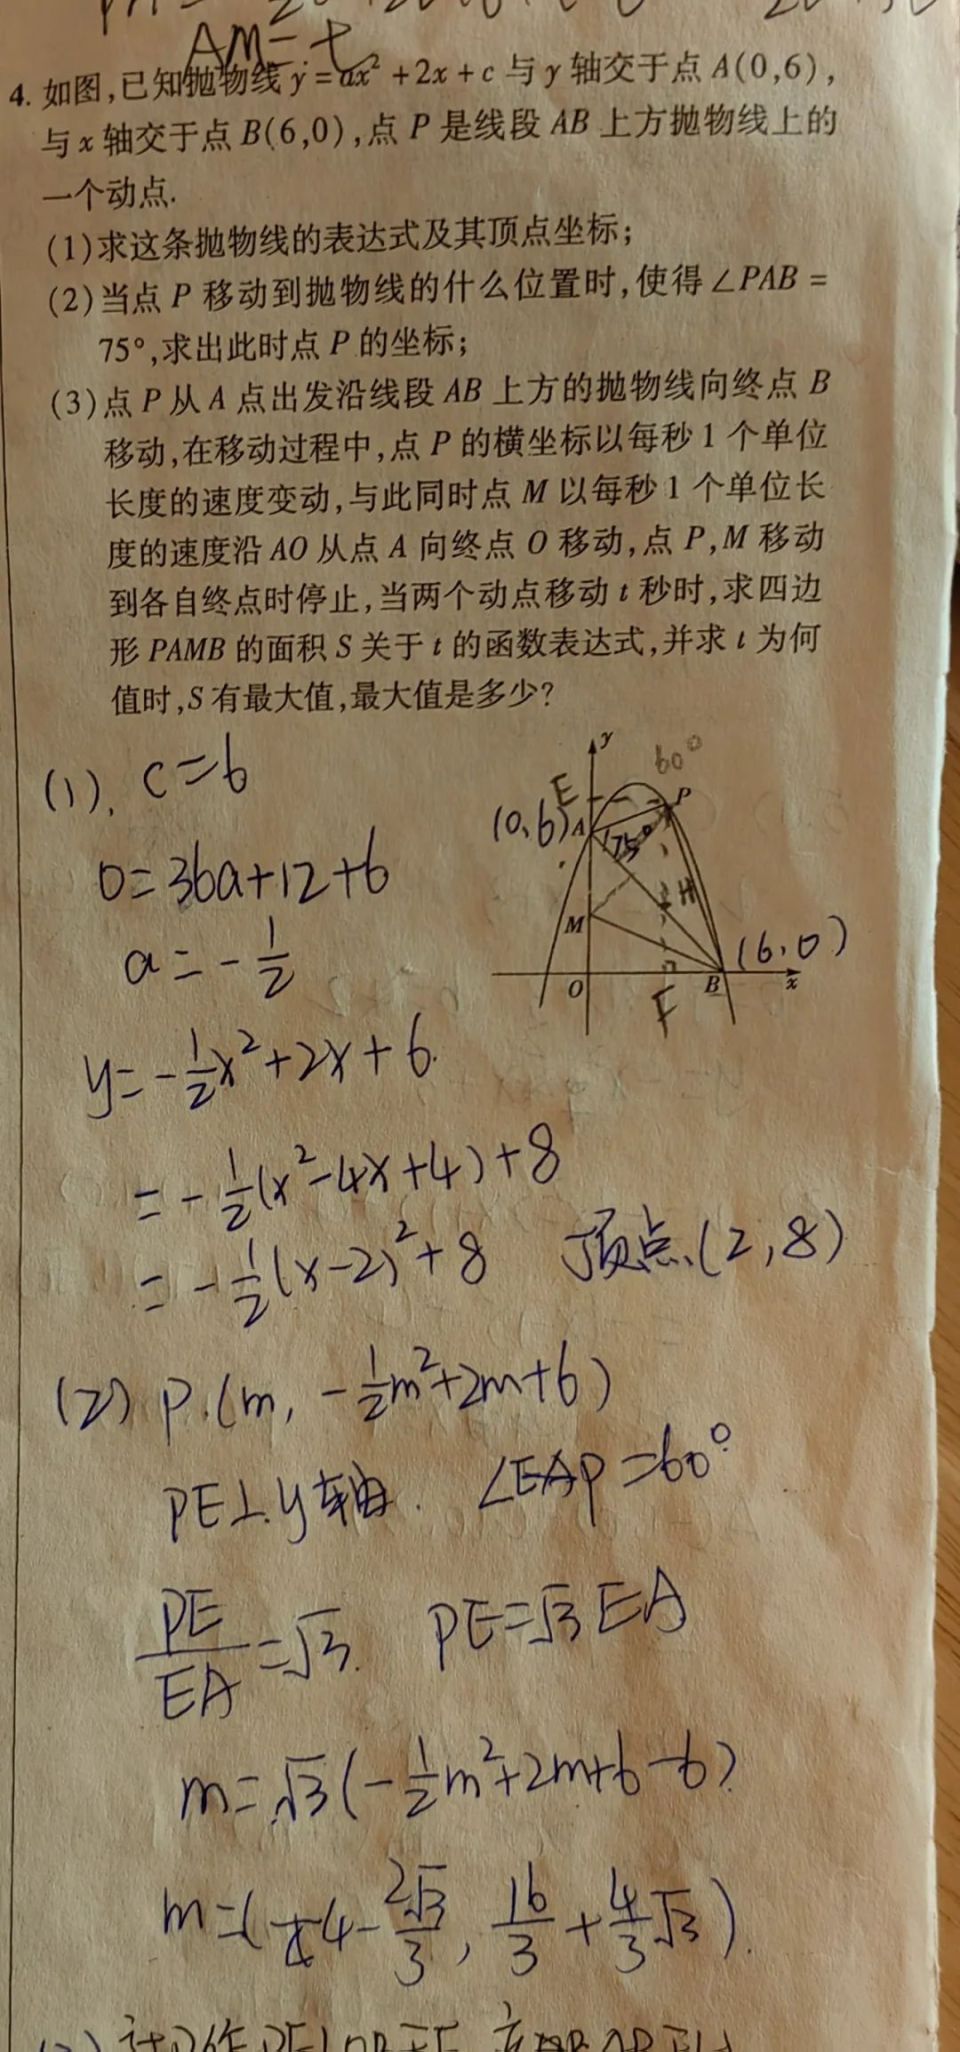 AM=t
4. 如图,已知抛物线 y=ax²+2x+c 与 y 轴交于点 A(0,6),
与 x 轴交于点 B(6,0),点 P 是线段 AB 上方抛物线上的
一个动点.
(1)求这条抛物线的表达式及其顶点坐标;
(2)当点 P 移动到抛物线的什么位置时,使得∠PAB=
75°,求出此时点 P 的坐标;
(3)点 P 从 A 点出发沿线段 AB 上方的抛物线向终点 B
移动,在移动过程中,点 P 的横坐标以每秒 1 个单位
长度的速度变动,与此同时点 M 以每秒 1 个单位长
度的速度沿 AO 从点 A 向终点 O 移动,点 P,M 移动
到各自终点时停止,当两个动点移动 t 秒时,求四边
形 PAMB 的面积 S 关于 t 的函数表达式,并求 t 为何
值时,S 有最大值,最大值是多少?
y
60°
E
P
(0,6)
A
75°
H
M
(6,0)
O
F
B
x
(1). c=6
0=36a+12+6
a=-1/2
y=-1/2x²+2x+6.
=-1/2(x²-4x+4)+8
=-1/2(x-2)²+8 顶点(2,8)
(2) P.(m, -1/2m²+2m+6)
PE⊥y轴. ∠EAP=60°
PE/EA=√3. PE=√3EA
m=√3(-1/2m²+2m+6-6)
m=( 4-2√3/3, 16/3+4/3√3).